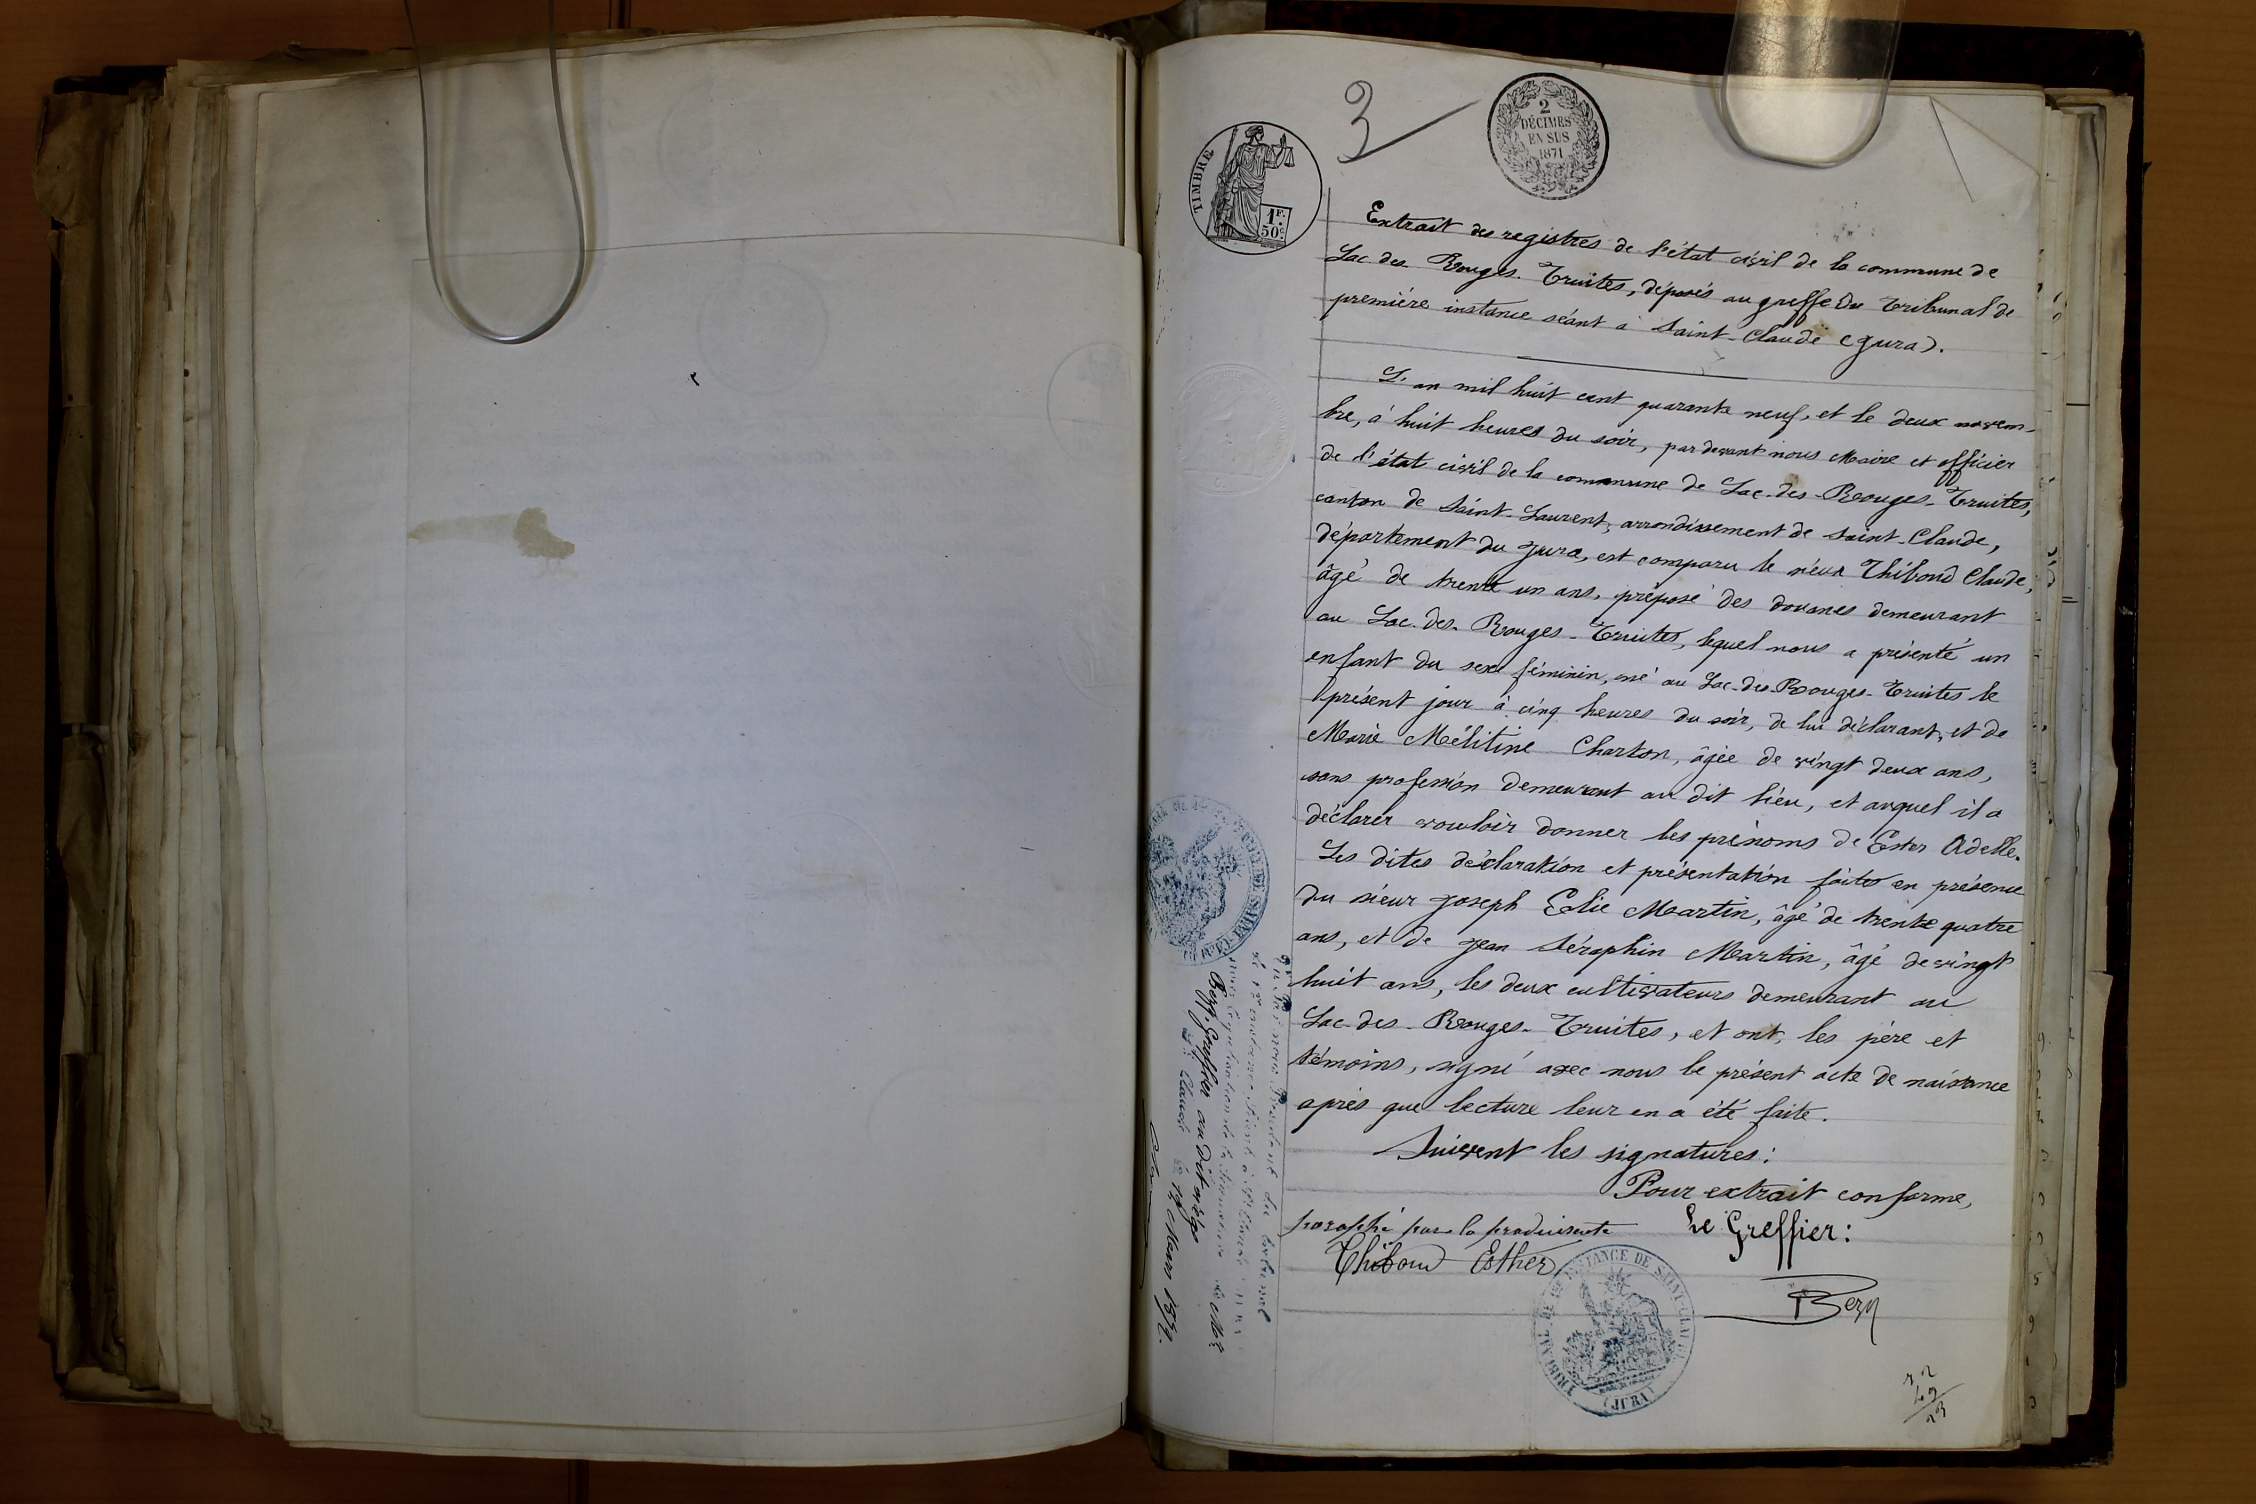 3
TIMBRE
1F.
50c.
2
DÉCIMES
EN SUS
1871
Extrait des registres de l'état civil de la commune de
Lac-des-Rouges-Truites, déposés au greffe du Tribunal de
première instance séant à Saint-Claude (Jura).
L'an mil huit cent quarante neuf, et le deux novem-
bre, à huit heures du soir, par devant nous Maire et officier
de l'état civil de la commune de Lac-des-Rouges-Truites,
canton de Saint-Laurent, arrondissement de Saint-Claude,
département du Jura, est comparu le sieur Thiboud Claude,
âgé de trente un ans, préposé des douanes demeurant
au Lac-des-Rouges-Truites, lequel nous a présenté un
enfant du sexe féminin, né au Lac-des-Rouges-Truites le
présent jour à cinq heures du soir, de lui déclarant, et de
Marie Mélitine Charton, âgée de vingt deux ans,
sans profession demeurant au dit lieu, et auquel il a
déclarer vouloir donner les prénoms de Ester Adelle.
Les dites déclaration et présentation faites en présence
du sieur Joseph Elie Martin, âgé de trente quatre
ans, et de Jean Séraphin Martin, âgé de vingt
huit ans, les deux cultivateurs demeurant au
Lac-des-Rouges-Truites, et ont, les père et
témoins, signé avec nous le présent acte de naissance
après que lecture leur en a été faite.
Suivent les signatures:
Pour extrait conforme,
Le Greffier:
paraphé par la produisante
Thiboud Esther
TRIBUNAL DE 1ère INSTANCE DE SAINT-CLAUDE
(JURA)
Greffier au dit siège
Mars 1872.
72
49
23